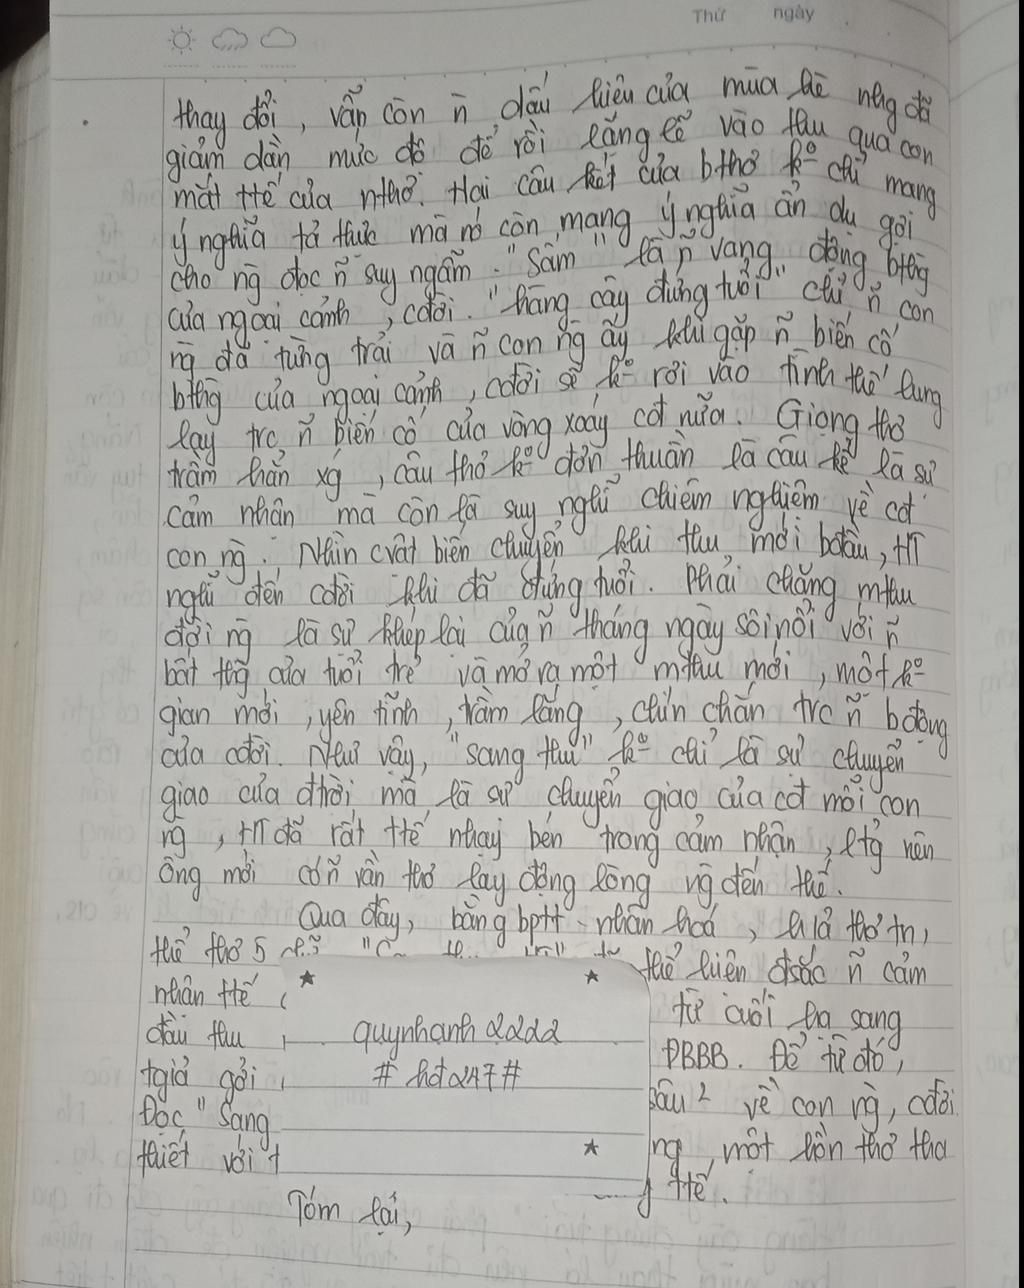 Thứ ngày
thay đổi, vẫn còn ~n dấu hiệu của mùa hè nhg đã
giảm dần mức độ để rồi lặng lẽ vào thu qua con
mắt ttế của nthơ. Hai câu kết của bthơ kº chỉ mang
ý nghĩa tả thực mà nó còn mang ý nghĩa ẩn dụ gợi
cho ng đọc ~n suy ngẫm. "Sấm" là ~n vang động bthg
của ngoại cảnh, cđời. "hàng cây đứng tuổi" chỉ ~n con
ng đã từng trải và ~n con ng ấy khi gặp ~n biến cố
bthg của ngoại cảnh, cđời sẽ kº rơi vào tình thế lung
lay trc ~n biến cố của vòng xoáy cđ nữa. Giọng thơ
trầm hẳn xg, câu thơ kº đơn thuần là câu kể là sự
cảm nhận mà còn là suy nghĩ chiêm nghiệm về cđ
con ng. Nhìn cvật biến chuyển khi thu mới bđầu, HT
nghĩ đến cđời khi đã đứng tuổi. Phải chăng mthu
đời ng là sự khép lại của ~n tháng ngày sôi nổi với ~n
bất thg của tuổi trẻ và mở ra một mthu mới, một kº
gian mới, yên tĩnh, trầm lắng, chín chắn trc ~n bđộng
của cđời. Như vậy, "sang thu" kº chỉ là sự chuyển
giao của đtrời mà là sự chuyển giao của cđ mỗi con
ng, HT đã rất ttế nhạy bén trong cảm nhận, ltg nên
ông mới có ~n vần thơ lay động lòng ng đến thế.
Qua đây, bằng bptt nhân hoá, h/ả thơ tn,
thể thơ 5 thể hiện đsắc ~n cảm
nhận ttế từ cuối hạ sang
đầu thu ĐBBB. Để từ đó,
tgiả gởi sâu² về con ng, cđời.
Đọc "Sang
thiết với một hồn thơ tha
ttế.
Tóm lại,
quynhanh2222
# hđ247#